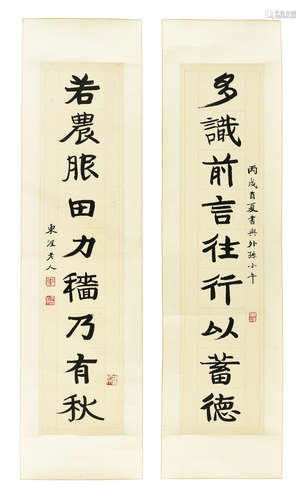 多識前言往行以蓄德
丙戌首夏書與外孫小午
若農服田力穡乃有秋
東淮老人